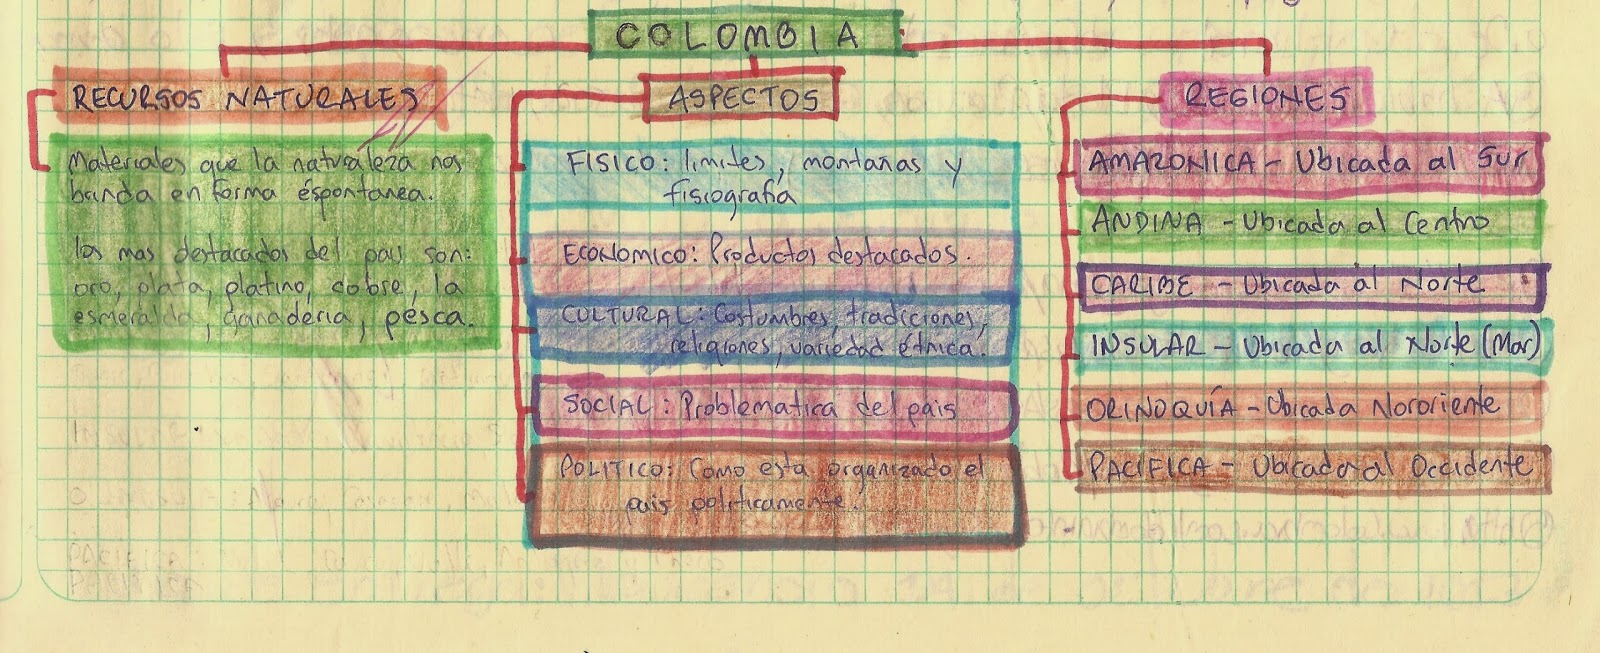 COLOMBIA
RECURSOS NATURALES
Materiales que la naturaleza nos
banda en forma éspontanea.
los mas destacados del pais son:
oro, plata, platino, cobre, la
esmeralda, ganaderia, pesca.
ASPECTOS
FISICO: limites, montañas y
fisiografia
ECONOMICO: Productos destacados.
CULTURAL: Costumbres, tradiciones,
religiones, variedad étnica.
SOCIAL: Problematica del pais
POLITICO: Como esta organizado el
pais politicamente.
REGIONES
AMAZONICA - Ubicada al Sur
ANDINA - Ubicada al Centro
CARIBE - Ubicada al Norte
INSULAR - Ubicada al Norte (Mar)
ORINOQUÍA - Ubicada Nororiente
PACIFICA - Ubicada al Occidente